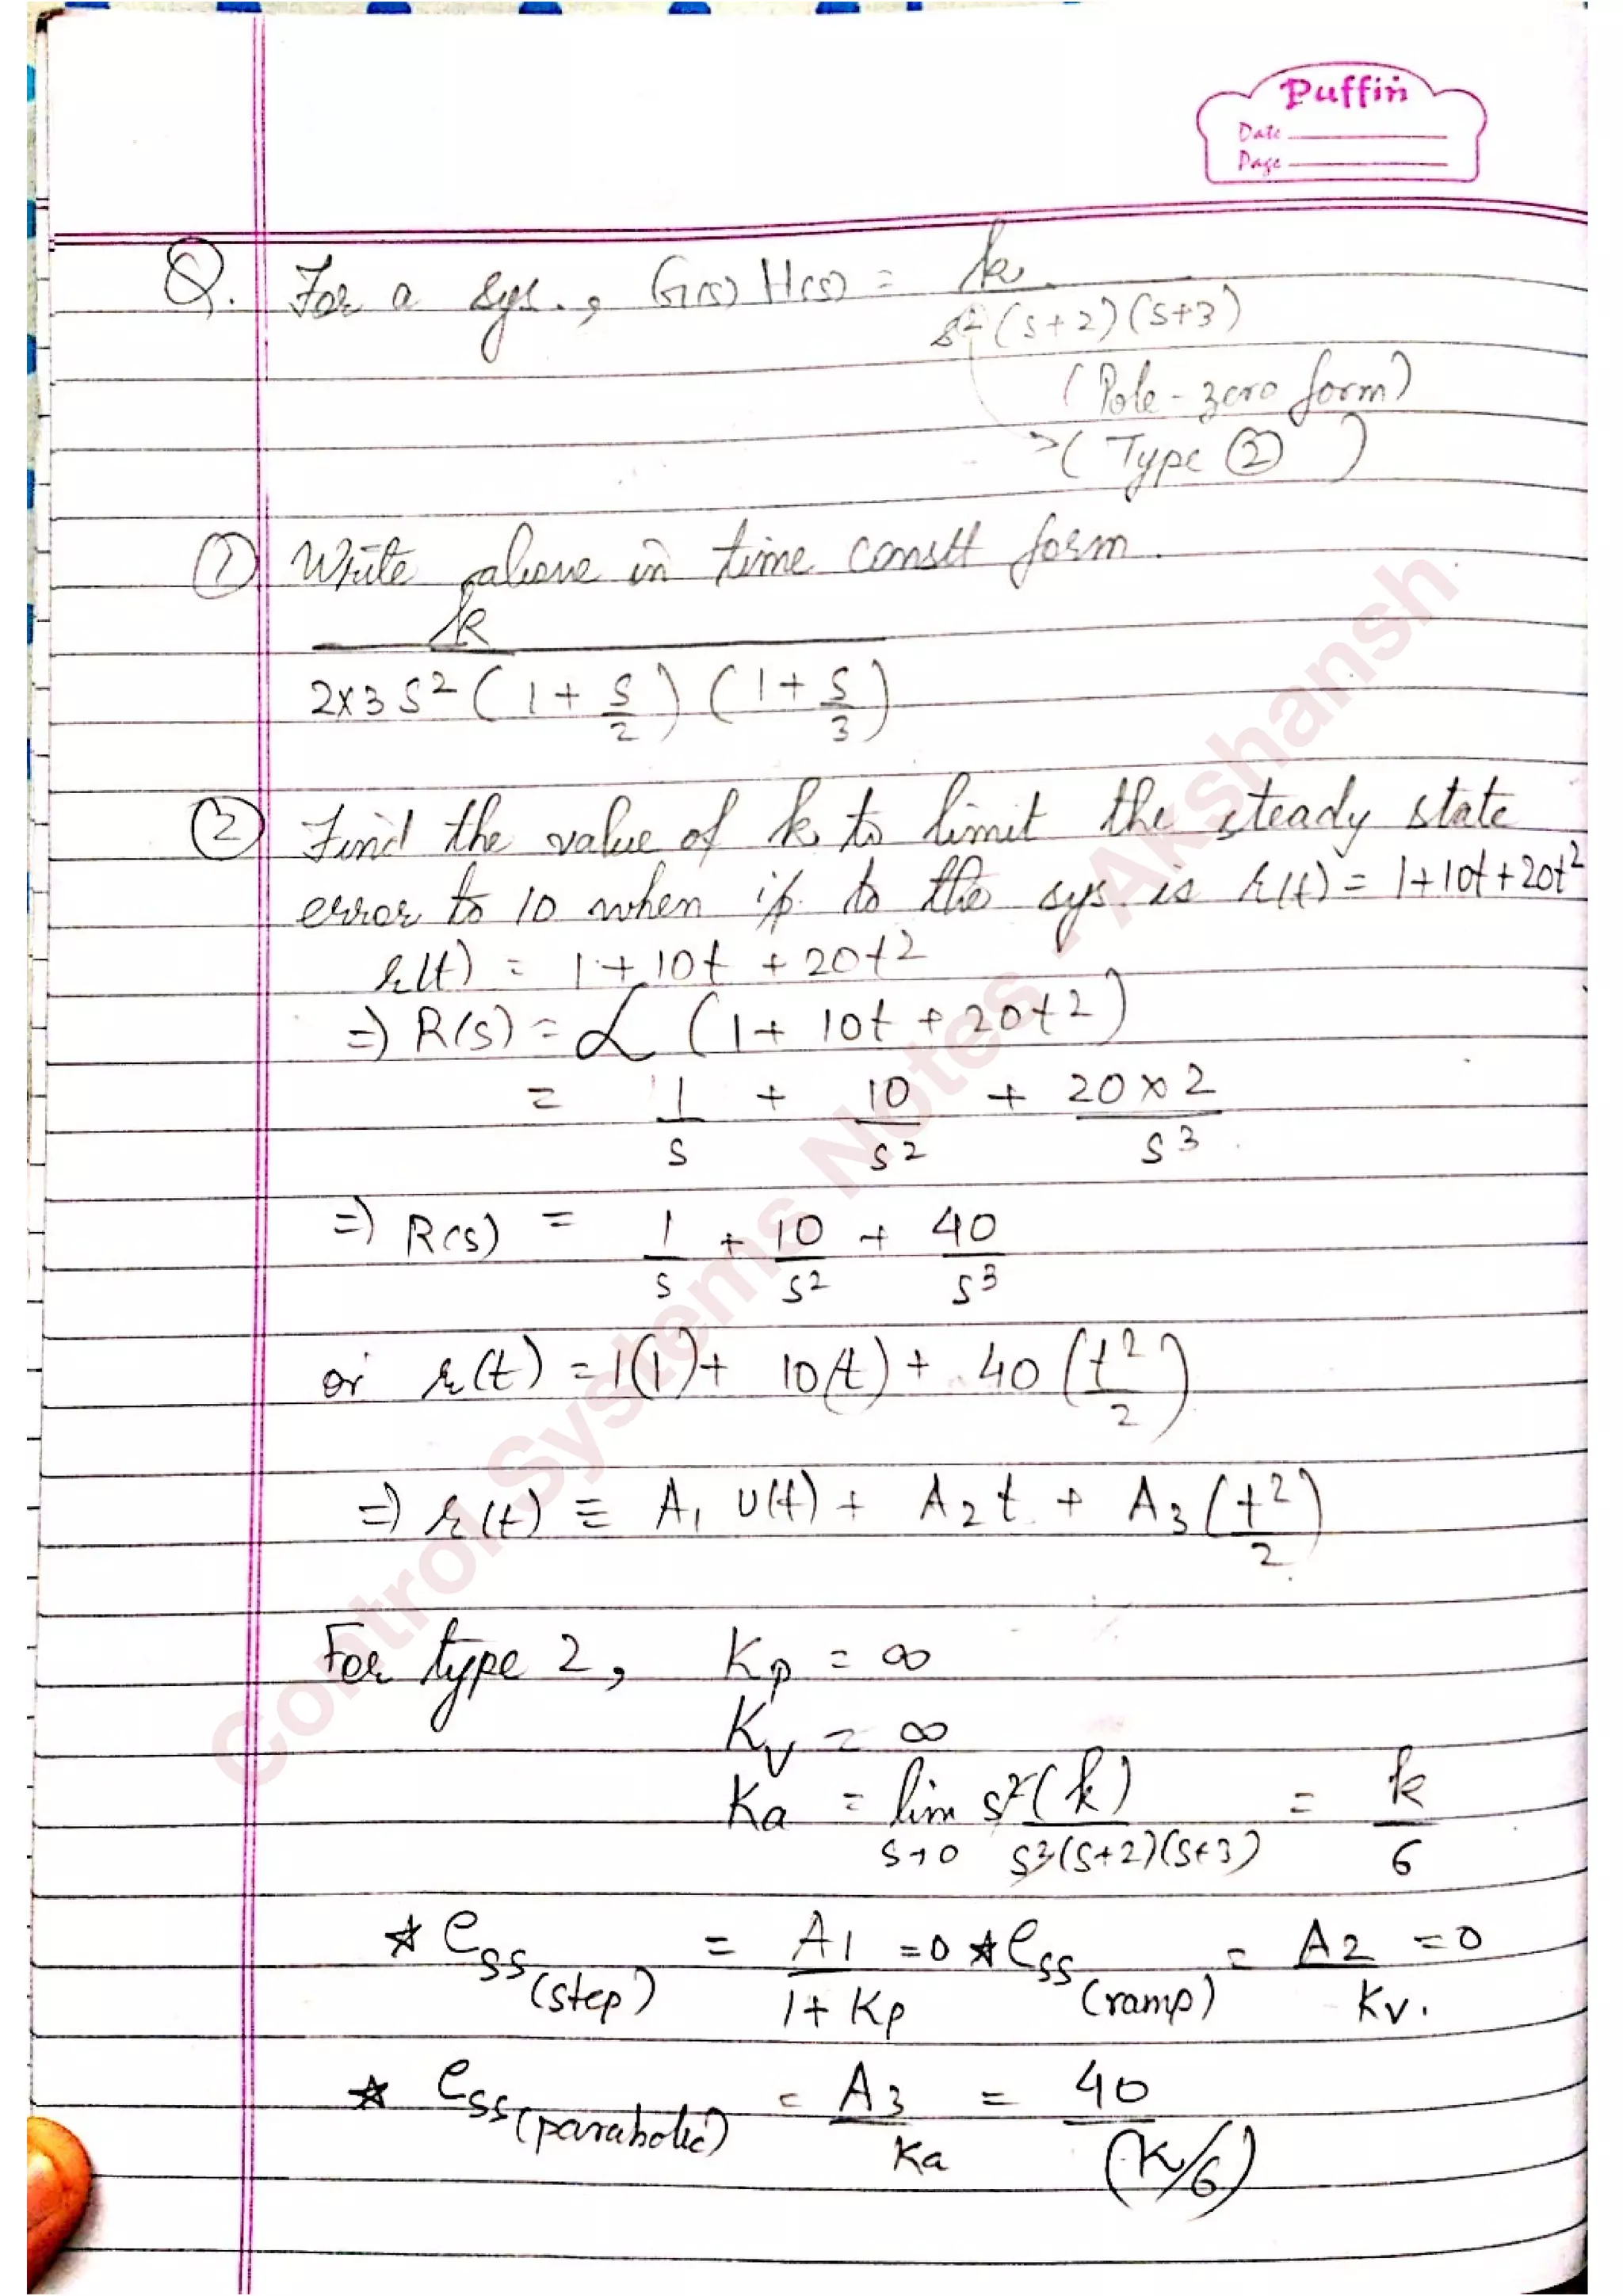 Puffin
Date
Page
Q. For a sys., G(s) H(s) = k / s²(s+2)(s+3)
(Pole-zero form)
→ (Type ②)
① Write above in time constt form.
k / 2×3 s² (1 + s/2) (1 + s/3)
② Find the value of k to limit the steady state
error to 10 when i/p. to the sys. is r(t) = 1+10t+20t²
r(t) = 1 + 10t + 20t²
⇒ R(s) = L (1 + 10t + 20t²)
= 1/s + 10/s² + 20×2/s³
⇒ R(s) = 1/s + 10/s² + 40/s³
or r(t) = 1(1) + 10(t) + 40 (t²/2)
⇒ r(t) = A₁ U(t) + A₂ t + A₃ (t²/2)
For type 2, Kp = ∞
Kv = ∞
Ka = lim s→0 s²(k) / s²(s+2)(s+3) = k/6
☆ ess(step) = A1 / 1+Kp = 0 ☆ ess(ramp) = A2 / Kv. = 0
☆ ess(parabolic) = A3 / Ka = 40 / (K/6)
Control Systems Notes - Akshansh